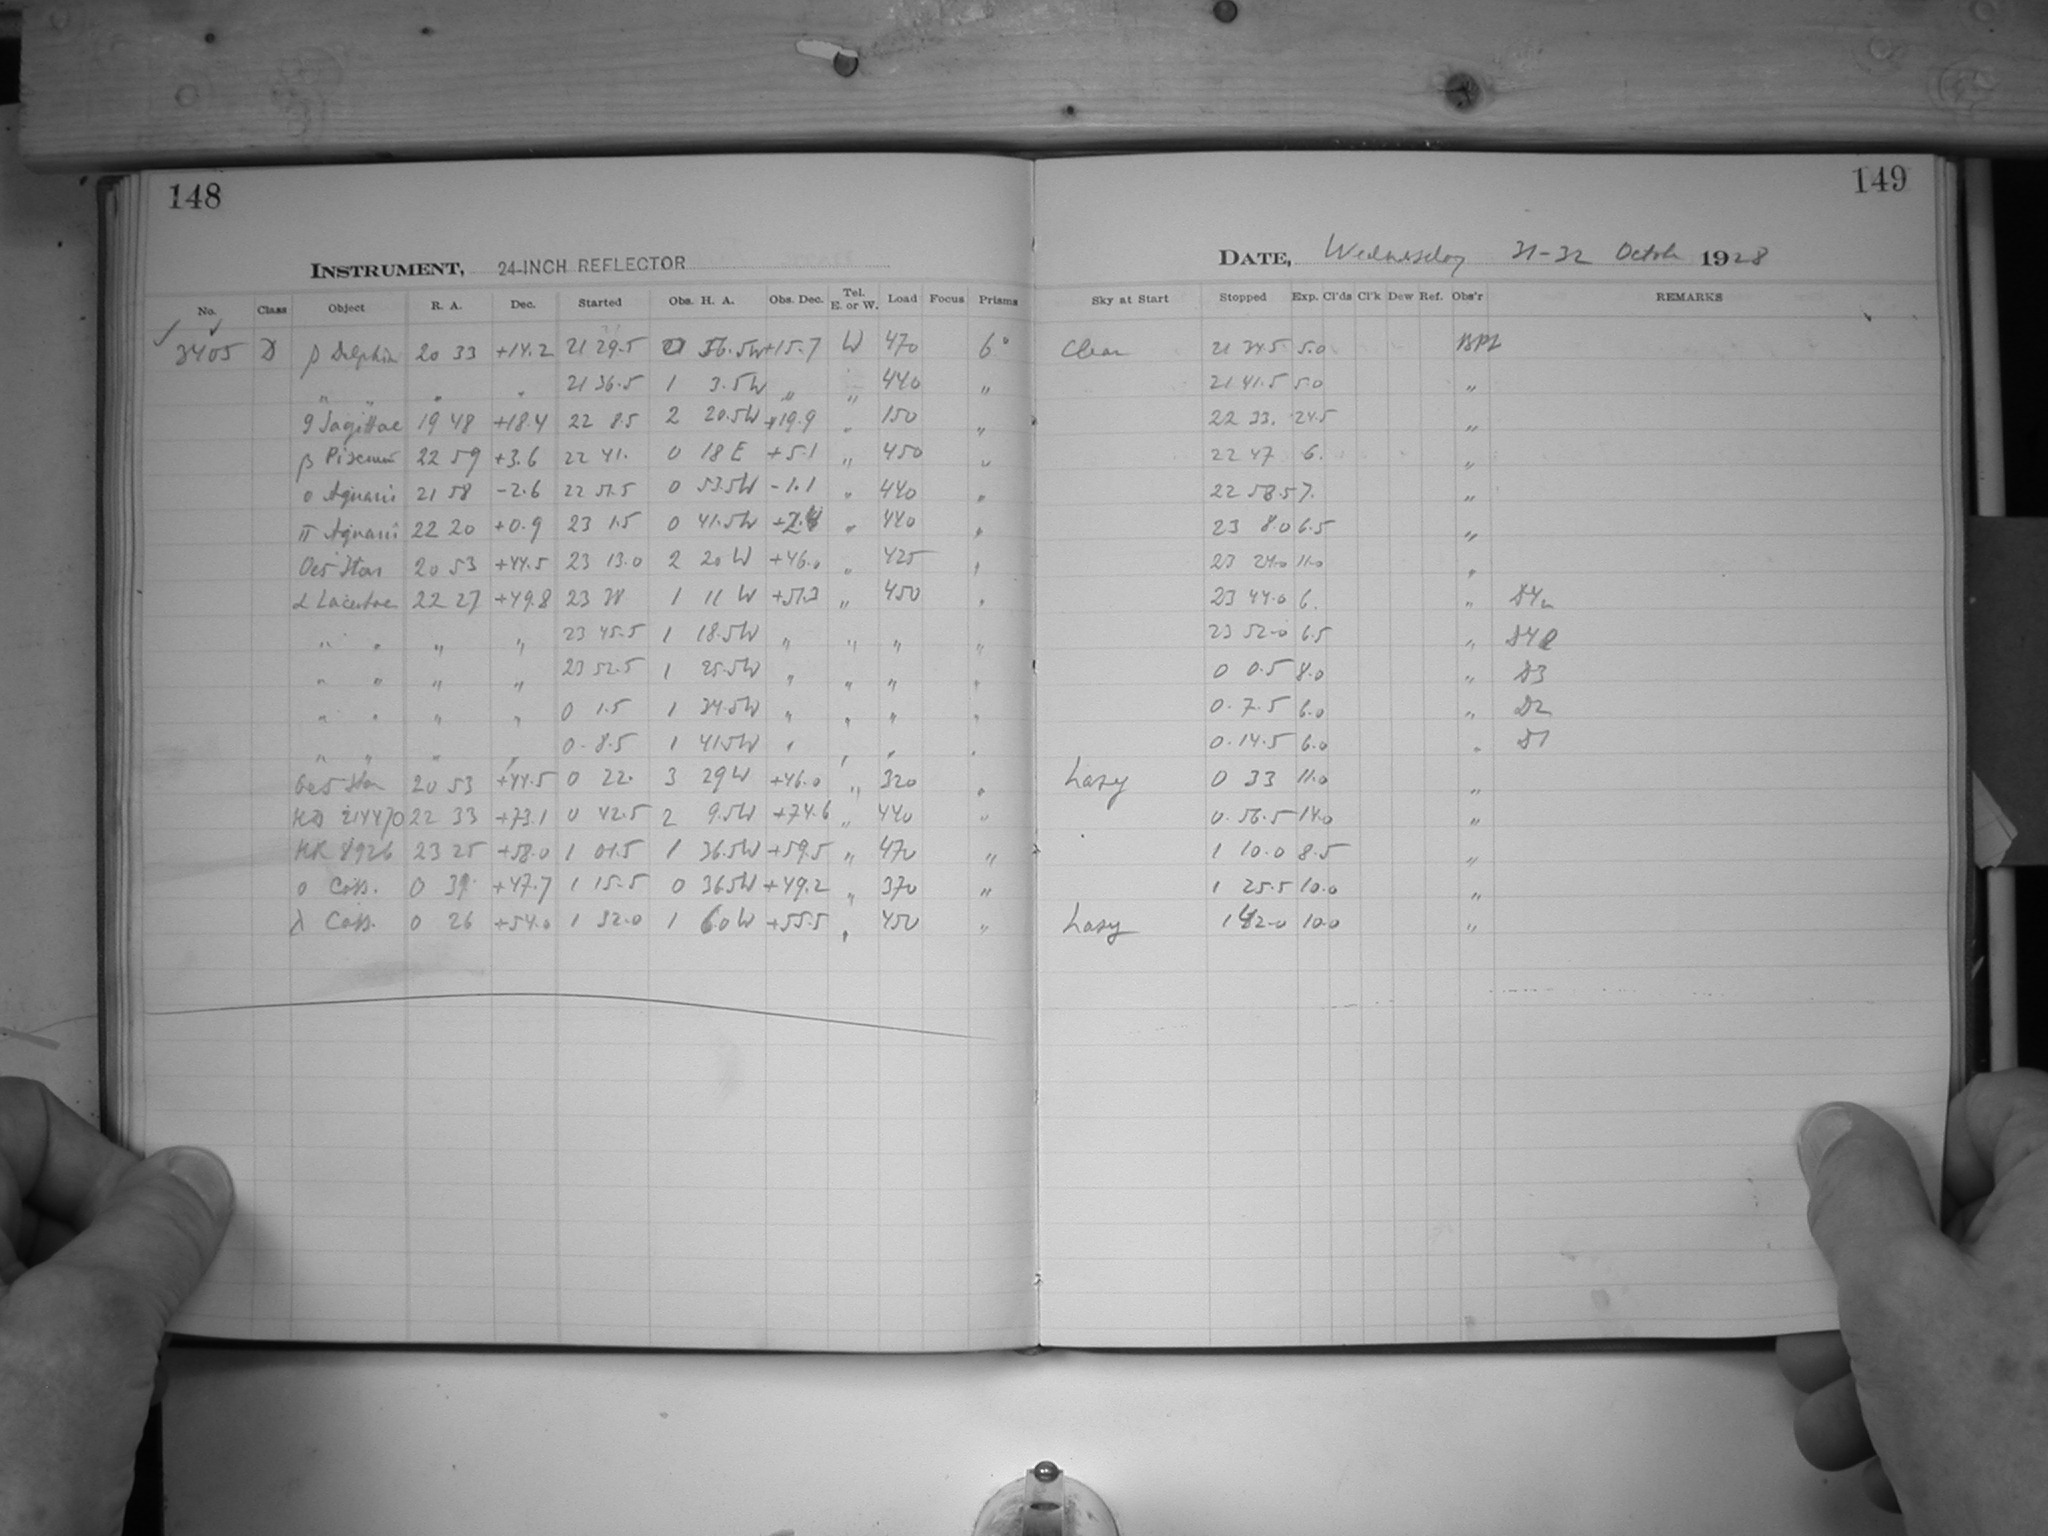 148
149
INSTRUMENT, 24-INCH REFLECTOR
DATE, Wednesday 31-32 Octob 1928
No. Class Object R. A. Dec. Started Obs. H. A. Obs. Dec. Tel. E. or W. Load Focus Prisms Sky at Start Stopped Exp. Cl'ds Cl'k Dew Ref. Obs'r REMARKS
3405 D β Delphin 20 33 +14.2 21 29.5 0 56.5W +15.7 W 470 6° Clear 21 34.5 5.0
" " " " 21 36.5 1 3.5W " " 440 " 21 41.5 5.0 "
9 Sagittae 19 48 +18.4 22 8.5 2 20.5W +19.9 " 150 " 22 33. 24.5 "
β Piscium 22 59 +3.6 22 41. 0 18 E +5.1 " 450 " 22 47 6. "
o Aquarii 21 58 -2.6 22 51.5 0 53.5W -1.1 " 440 " 22 58.5 7. "
π Aquarii 22 20 +0.9 23 1.5 0 41.5W +2.4 " 440 " 23 8.0 6.5 "
Oe5 Star 20 53 +44.5 23 13.0 2 20 W +46.0 " 425 " 23 24.0 11.0 "
α Lacertae 22 27 +49.8 23 38 1 11 W +51.3 " 450 " 23 44.0 6. "
" " " " 23 45.5 1 18.5W " " " " 23 52.0 6.5 "
" " " " 23 52.5 1 25.5W " " " " 0 0.5 8.0 " D3
" " " " 0 1.5 1 34.5W " " " " 0.7.5 6.0 " D2
" " " " 0.8.5 1 41.5W " " " " 0.14.5 6.0 " D1
Oe5 Star 20 53 +44.5 0 22. 3 29W +46.0 " 320 " hazy 0 33 11.0 "
HD 214470 22 33 +73.1 0 42.5 2 9.5W +74.6 " 440 " 0.56.5 14.0 "
HR 8926 23 25 +58.0 1 01.5 1 36.5W +59.5 " 470 " 1 10.0 8.5 "
o Cass. 0 39. +47.7 1 15.5 0 36.5W +49.2 " 370 " 1 25.5 10.0 "
λ Cass. 0 26 +54.0 1 32.0 1 6.0W +55.5 " 450 " hazy 1 42.0 10.0 "